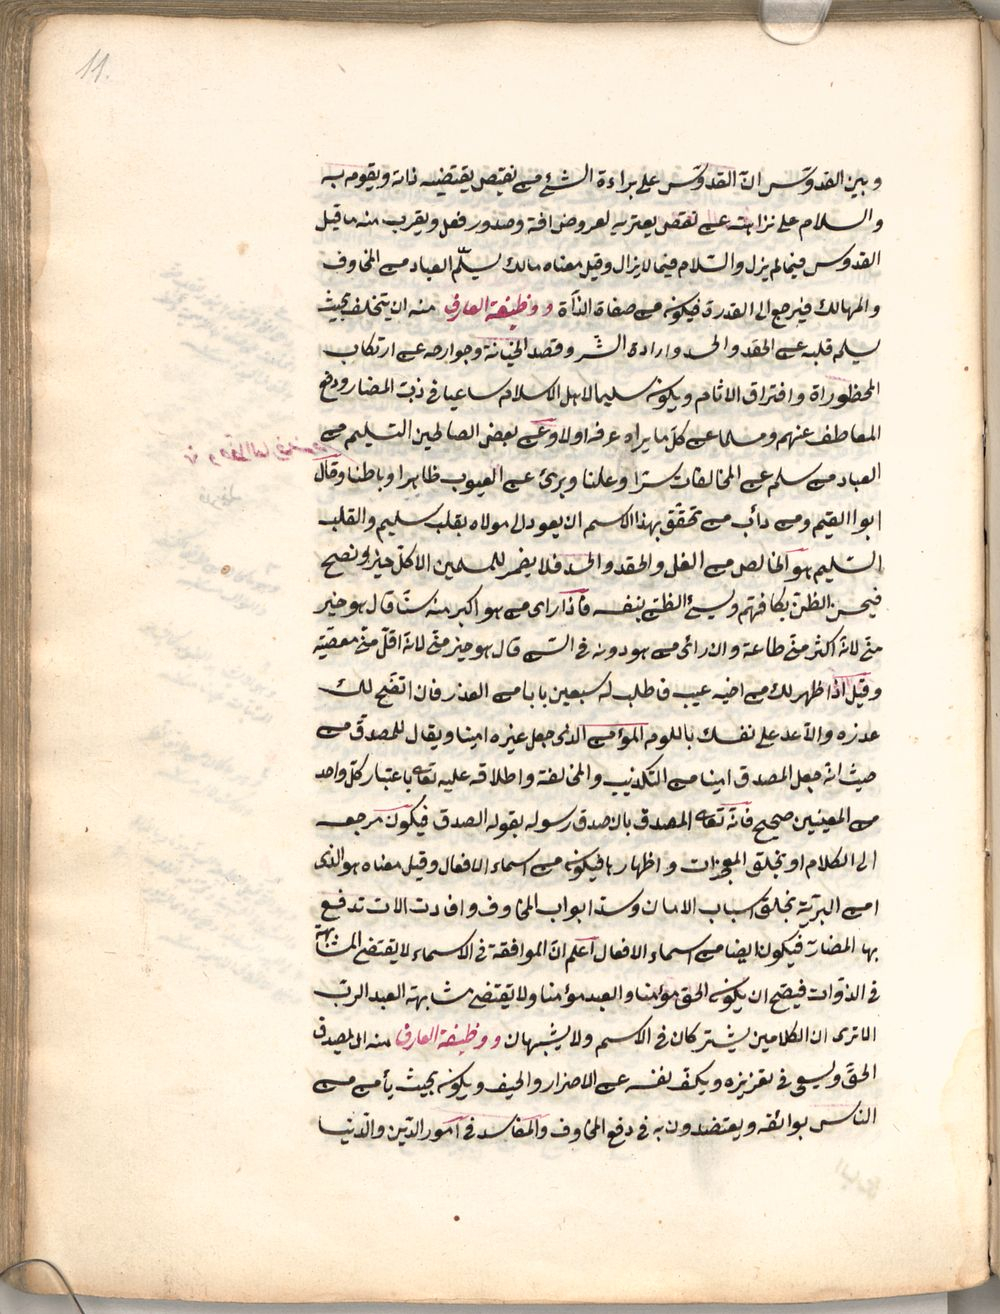 11.
وبين القدوس ان القدوس على براءة الشئ من نقيص يقتضيه ذاته ويقومه به
والسلام على نزاهته عن نقص يعتريه لعروض افة وصدور فعل ويقرب منه ما قيل
القدوس فيما لم يزل والسلام فيما لا يزال وقيل معناه مالك يسلّم العباد من المخاوف
والمهالك فيرجع الى القدرة فيكون من صفاة الذاة ووظيفة العارف منه ان يتخلف بحيث
يسلم قلبه عن الحقد والحسد وارادة الشر وقصد الخيانة وجوارحه عن ارتكاب
المحظوراة وافتراق الاثام ويكون سليما لاهل الاسلام ساعيا فى ذب المضار ودفع
المعاطف عنهم ومسلما على كل ما يراه عرفه اولا وعن بعض الصالحين السليم من
العباد من سلم عن المخالفات سرا وعلنا وبرئ عن العيوب ظاهرا وباطنا وقال
ابوا القيم ومن دأب من تحقق بهذا الاسم ان يعود الى مولاه بقلب سليم والقلب
السليم هو الخالص من الغل والحقد والحسد فلا يضمر للمسلمين الا كل خير ونصح
فيحسن الظن بكافتهم ويسئ الظن بنفسه فاذا راى من هو اكبر منه سنا قال هو خير
منى لانه اكثر منى طاعة وان رائى من هو دونه فى السن قال هو خير منى لانه اقل منى معصية
وقيل اذا ظهر لك من اخيه عيب فاطلب له سبعين بابا من العذر فان اتضح لك
عذره والا عد على نفسك باللوم المؤمن الذى جعل غيره امينا ويقال للمصدق من
حيث انه جعل المصدق امينا من التكذيب والمخالفة واطلاقه عليه تعالى باعتبار كل واحد
من المعنيين صحيح فانه تعالى المصدق بان صدق رسوله بقوله الصدق فيكون مرجعه
الى الكلام او بخلق المعجزات واظهارها فيكون من اسماء الافعال وقيل معناه هو الذى
امن البرية بخلق اسباب الامان وسد ابواب المخاوف وافادت الات تدفع
بها المضار فيكون ايضا من اسماء الافعال اعلم ان الموافقة فى الاسماء لا يقتضى المشابهة
فى الذوات فيصح ان يكون الحق مؤمنا والعبد مؤمنا ولا يقتضى مشابهة العبد الرب
الا ترى ان الكلامين يشتركان فى الاسم ولا يشبهان ووظيفة العارف منه ان يصدق
الحق ويسعى فى تقريره ويكف نفسه عن الاضرار والحيف ويكون بحيث يأمن من
الناس بوائقه ويعتضدون به فى دفع المخاوف والمفاسد فى امور الدين والدنيا